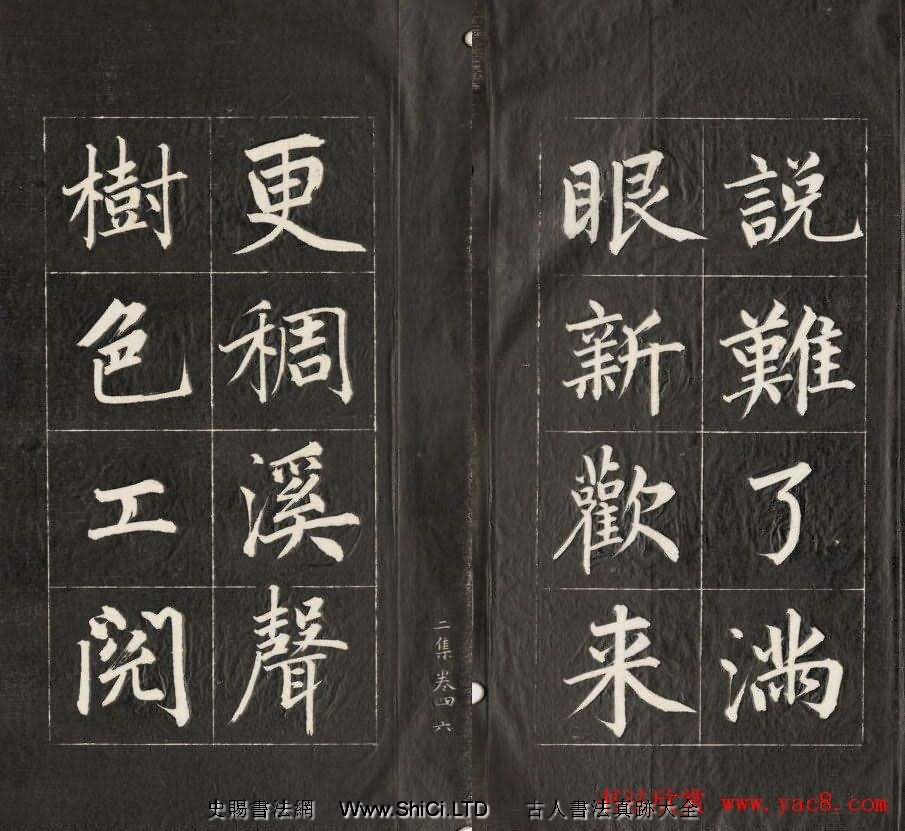 説難了满
眼新歡来
更稠溪聲
樹色工閱
二集卷四 六
史賜書法網 Www.ShiCi.LTD 古人書法真跡大全
书法欣赏 www.yac8.com